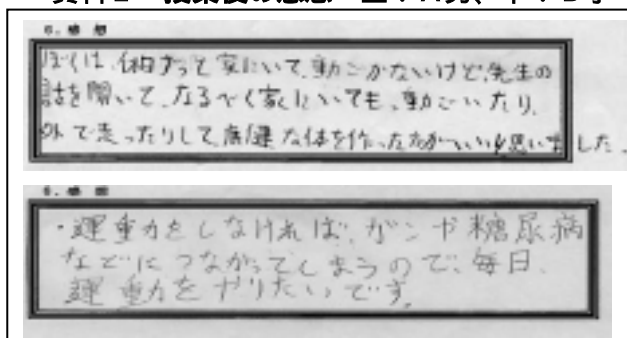 6. 感想
ぼくは、休日ずっと家にいて、動ごかないけど、先生の
話を聞いて、なるべく家にいても、動ごいたり、
外で走ったりして康健な体を作った方がいいと思いました。
6. 感想
・運動をしなければ、ガンや糖尿病
などにつながってしまうので、毎日、
運動をやりたいです。